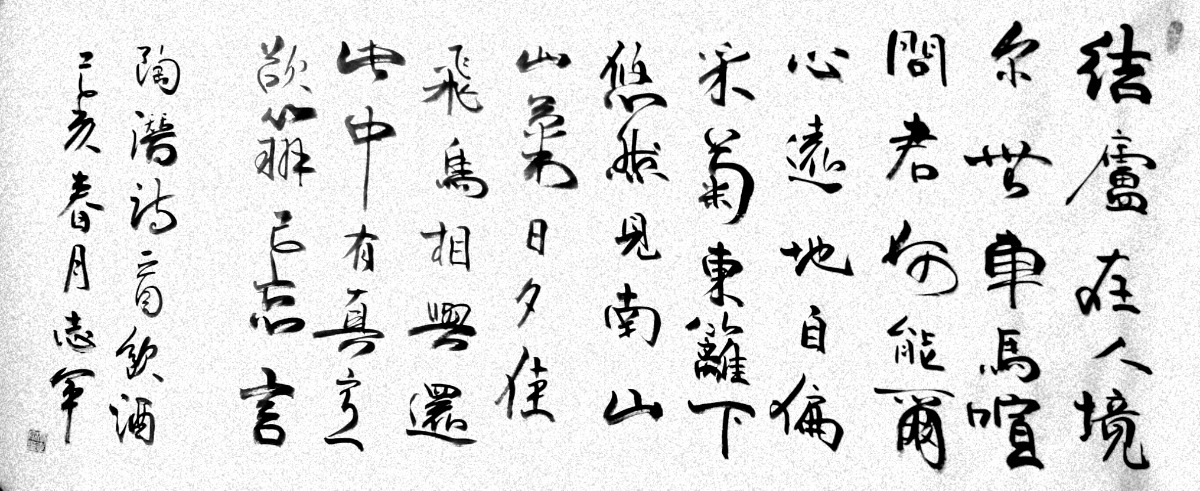 結廬在人境
尔無車馬喧
問君何能爾
心遠地自偏
采菊東籬下
悠然見南山
山氣日夕佳
飛鳥相與還
此中有真意
欲辯已忘言
陶潛詩一首飲酒
己亥春月志軍